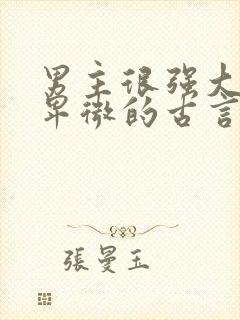 男主很强大
卑微的古言
張曼玉